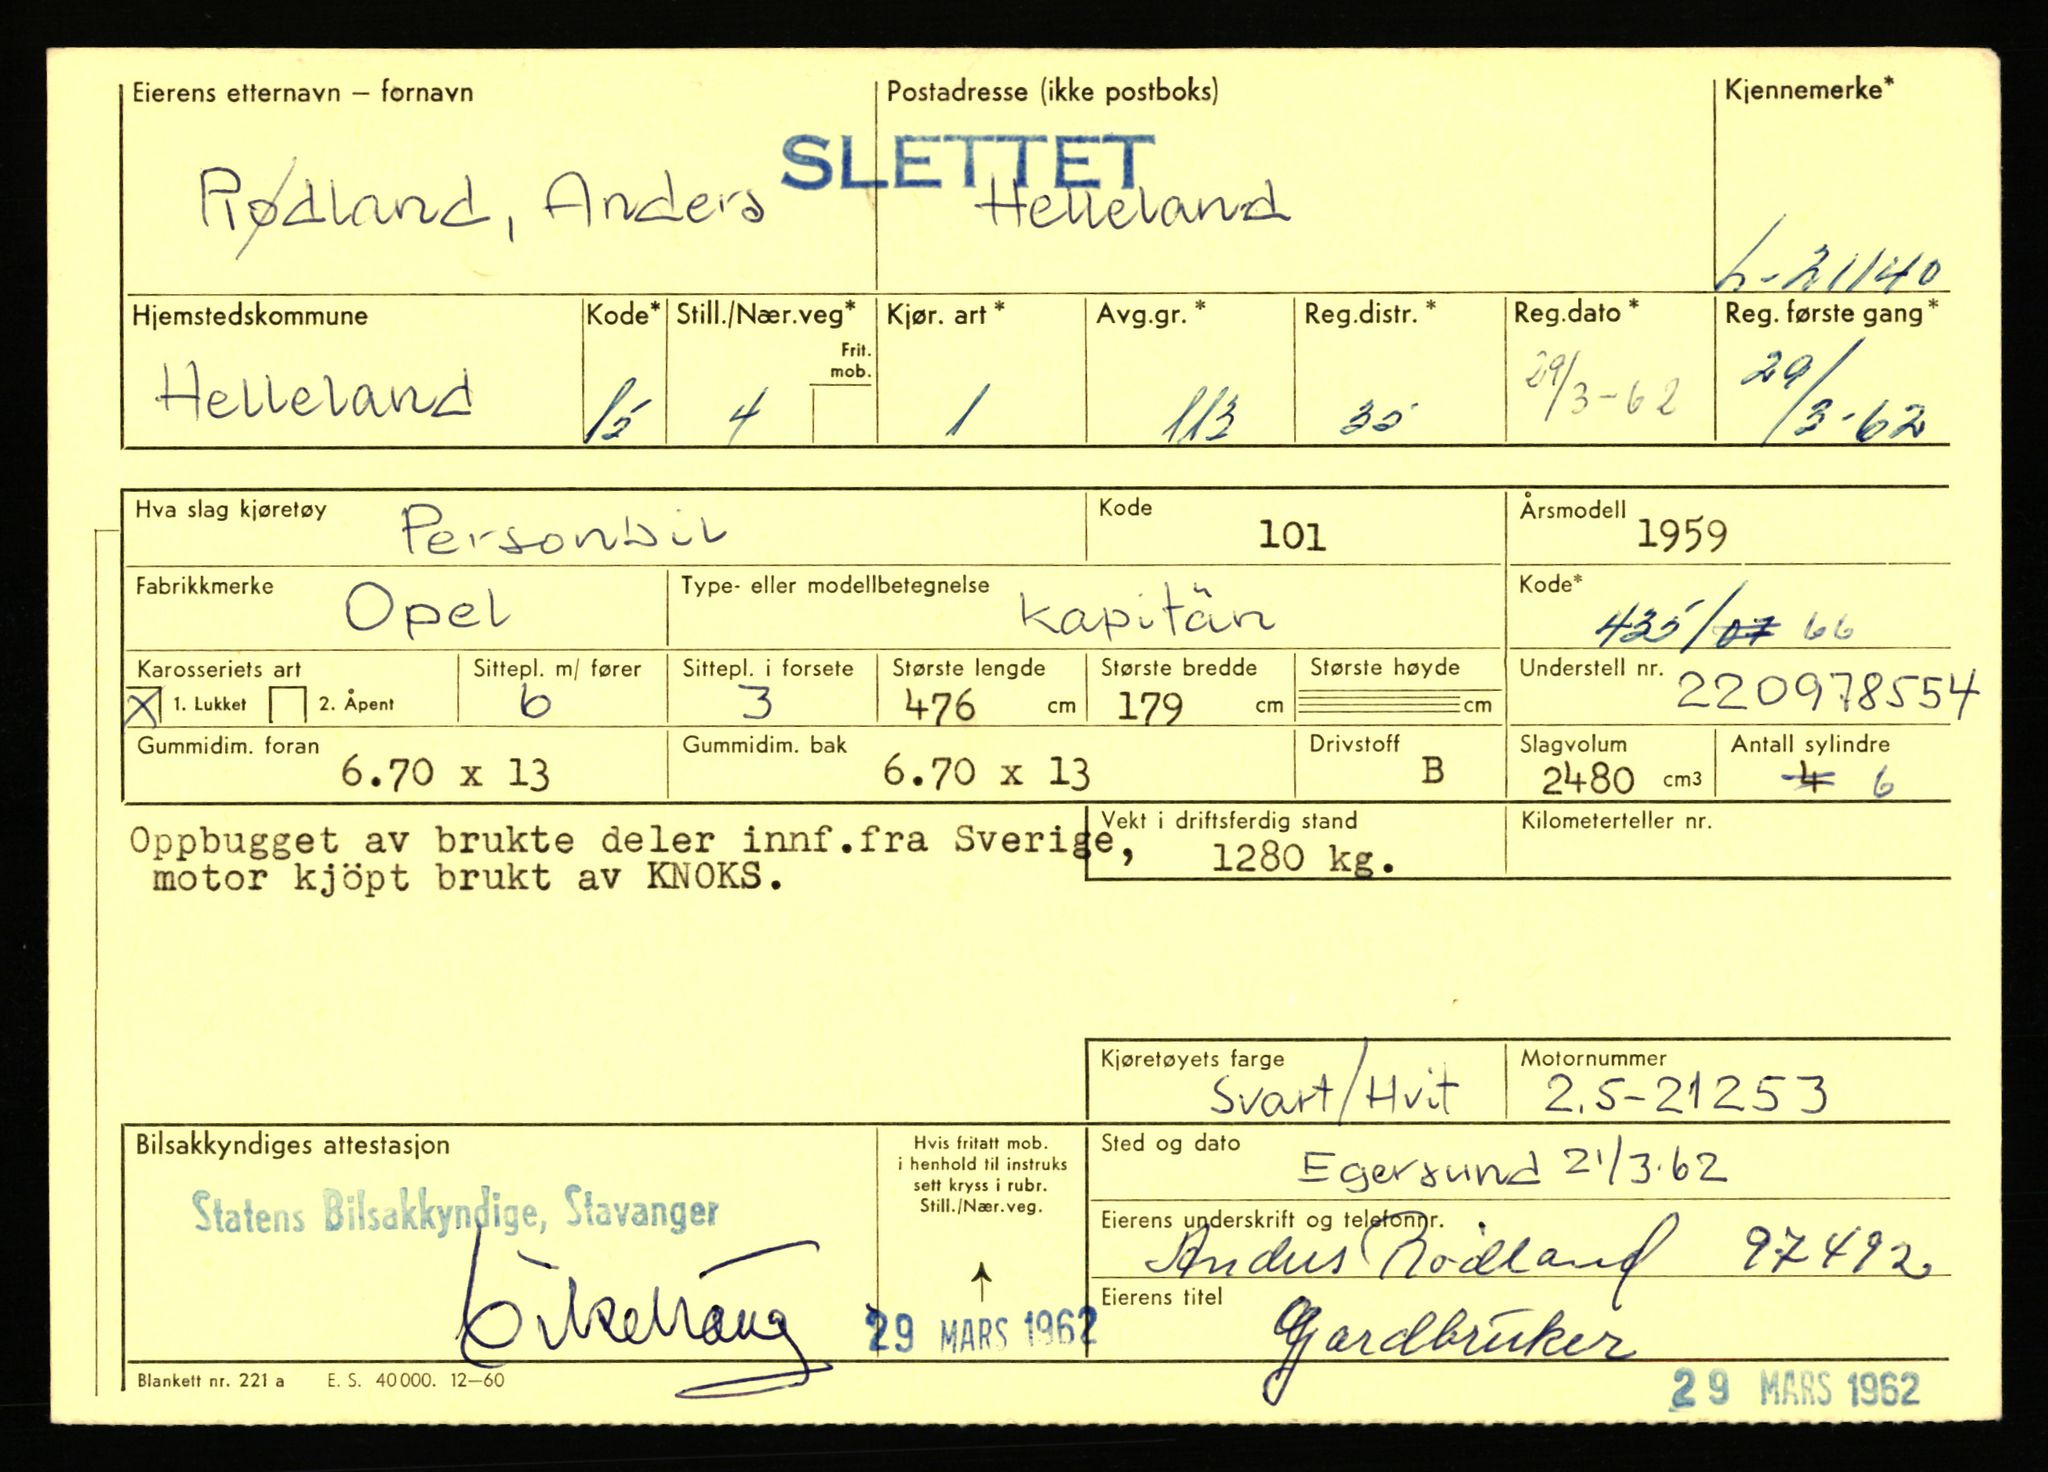 Eierens etternavn – fornavn Postadresse (ikke postboks) Kjennemerke*
SLETTET
Rødland, Anders Helleland
L-21140
Hjemstedskommune Kode* Still./Nær.veg* Kjør. art* Avg.gr.* Reg.distr.* Reg.dato* Reg. første gang*
Frit. mob.
Helleland 15 4 1 113 35 29/3-62 29/3-62
Hva slag kjøretøy Personbil Kode 101 Årsmodell 1959
Fabrikkmerke Opel Type- eller modellbetegnelse Kapitän Kode* 435/07 66
Karosseriets art Sittepl. m/ fører Sittepl. i forsete Største lengde Største bredde Største høyde Understell nr. 220978554
X 1. Lukket 2. Åpent 6 3 476 cm 179 cm cm
Gummidim. foran Gummidim. bak Drivstoff Slagvolum Antall sylindre
6.70 x 13 6.70 x 13 B 2480 cm3 4 6
Oppbugget av brukte deler innf.fra Sverige,
motor kjöpt brukt av KNOKS.
Vekt i driftsferdig stand Kilometerteller nr.
1280 kg.
Kjøretøyets farge Motornummer
Svart/Hvit 2.5-21253
Bilsakkyndiges attestasjon
Statens Bilsakkyndige, Stavanger
Hvis fritatt mob.
i henhold til instruks
sett kryss i rubr.
Still./Nær.veg.
29 MARS 1962
Sted og dato
Egersund 21/3.62
Eierens underskrift og telefonnr.
Anders Rödland 97492
Eierens titel
Gjardbruker
Blankett nr. 221 a E. S. 40 000. 12–60
29 MARS 1962